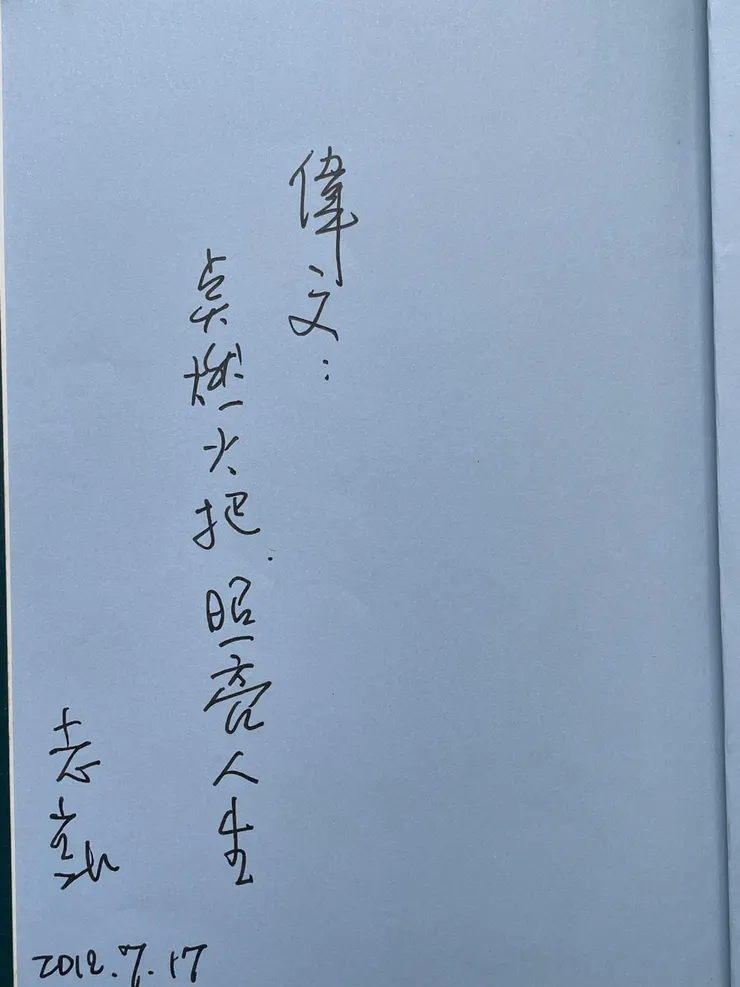 偉文：
点燃火把．照亮人生
志
2012.7.17